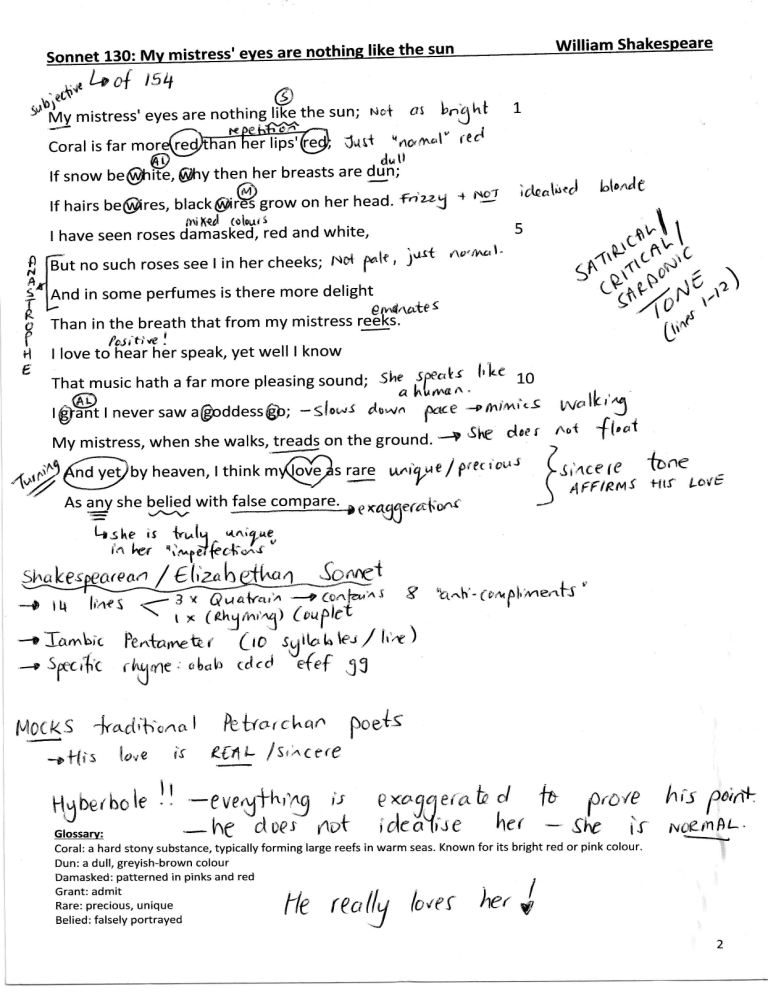 Sonnet 130: My mistress' eyes are nothing like the sun William Shakespeare
↳ of 154
subjective
Ⓢ
My mistress' eyes are nothing like the sun; Not as bright 1
repetition
Coral is far more red than her lips' red; Just "normal" red
AL dull
If snow be white, why then her breasts are dun;
M
If hairs be wires, black wires grow on her head. Frizzy + NOT idealised blonde
mixed colours
I have seen roses damasked, red and white, 5
But no such roses see I in her cheeks; Not pale, just normal.
ANASTROPHE
And in some perfumes is there more delight
emanates
Than in the breath that from my mistress reeks.
Positive!
I love to hear her speak, yet well I know
That music hath a far more pleasing sound; She speaks like a human. 10
AL
I grant I never saw a goddess go; - slows down pace → mimics walking
My mistress, when she walks, treads on the ground. → She does not float
SATIRICAL/
CRITICAL/
SARDONIC
TONE
(lines 1-12)
Turning
And yet, by heaven, I think my love as rare unique/precious
As any she belied with false compare. → exaggerations
sincere tone
AFFIRMS HIS LOVE
↳ she is truly unique
in her "imperfections"
Shakespearean / Elizabethan Sonnet
→ 14 lines < 3 x Quatrain → contains 8 "anti-compliments"
1 x (Rhyming) Couplet
→ Iambic Pentameter (10 syllables/line)
→ Specific rhyme: abab cdcd efef gg
MOCKS traditional Petrarchan poets
→ His love is REAL/sincere
Hyberbole !! - everything is exaggerated to prove his point.
- he does not idealise her - She is NORMAL.
Glossary:
Coral: a hard stony substance, typically forming large reefs in warm seas. Known for its bright red or pink colour.
Dun: a dull, greyish-brown colour
Damasked: patterned in pinks and red
Grant: admit
Rare: precious, unique
Belied: falsely portrayed
He really loves her!
2